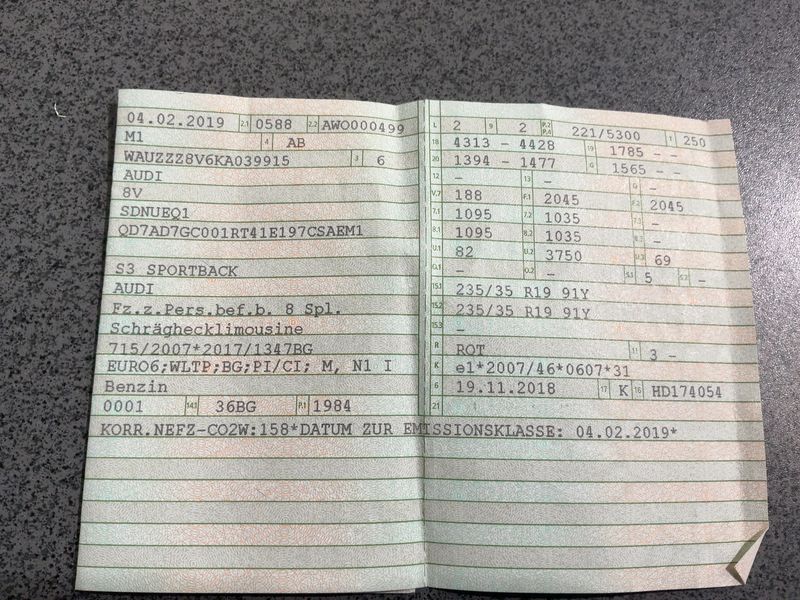 04.02.2019 2.1 0588 2.2 AWO000499
M1 4 AB
WAUZZZ8V6KA039915 3 6
AUDI
8V
SDNUEQ1
QD7AD7GC001RT41E197CSAEM1
S3 SPORTBACK
AUDI
Fz.z.Pers.bef.b. 8 Spl.
Schräghecklimousine
715/2007*2017/1347BG
EURO6;WLTP;BG;PI/CI; M, N1 I
Benzin
0001 14.1 36BG P.1 1984
KORR.NEFZ-CO2W:158*DATUM ZUR EMISSIONSKLASSE: 04.02.2019*
L 2 9 2 P.2 P.4 221/5300 T 250
18 4313 - 4428 19 1785 - -
20 1394 - 1477 G 1565 - -
12 - 13 - Q -
V.7 188 F.1 2045 F.2 2045
7.1 1095 7.2 1035 7.3 -
8.1 1095 8.2 1035 8.3 -
U.1 82 U.2 3750 U.3 69
O.1 - O.2 - S.1 5 S.2 -
15.1 235/35 R19 91Y
15.2 235/35 R19 91Y
15.3 -
R ROT 11 3 -
K e1*2007/46*0607*31
6 19.11.2018 17 K 16 HD174054
21